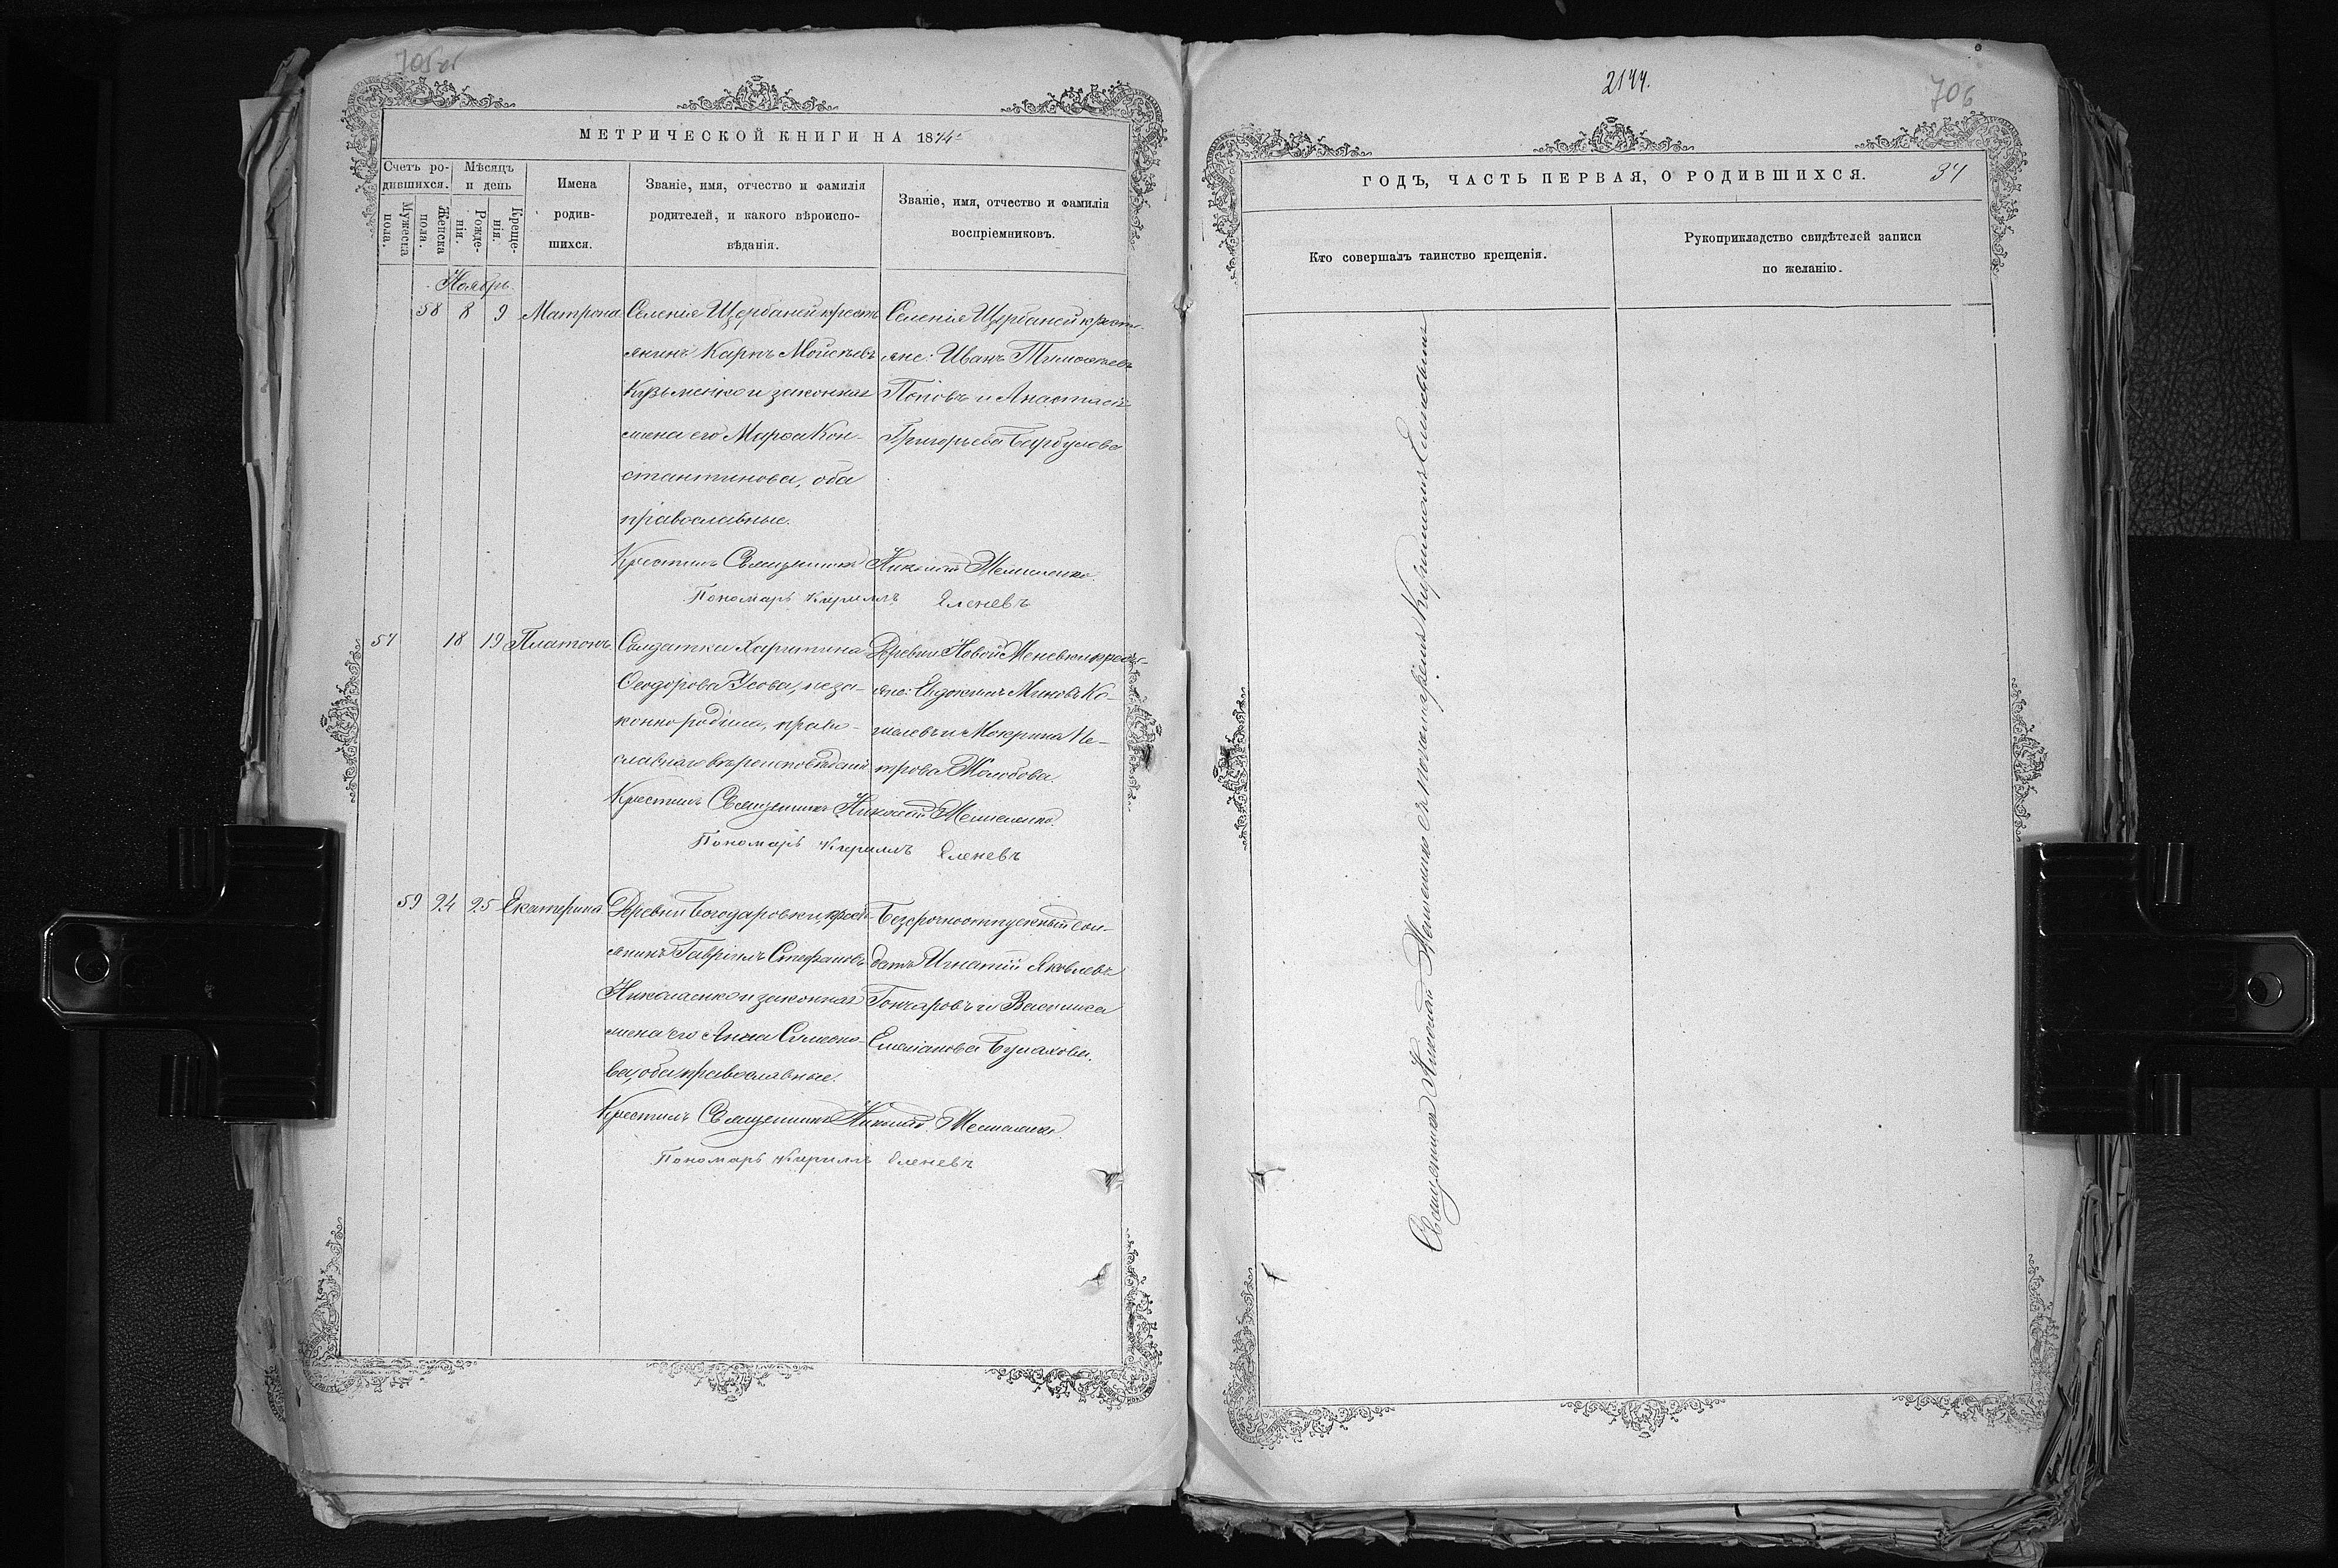 705об
МЕТРИЧЕСКОЙ КНИГИ НА 1874
Счетъ родившихся.
Мужеска пола.
Женска пола.
Мѣсяцъ и день
Рожденія.
Крещенія.
Имена родившихся.
Званіе, имя, отчество и фамилія
родителей, и какого вѣроиспо-
вѣданія.
Званіе, имя, отчество и фамилія
воспріемниковъ.
Ноябрь
58 8 9 Матрона Селенія Щербаней кресть
янинъ Карпъ Мойсѣевъ
Кузьменко и законная
жена его Марѳа Кон-
стантинова, оба
православные.
Селенія Щербаней кресть-
яне: Иванъ Тимоѳеевъ
Поповъ и Анастасія
Григорьева Барбулова
Крестилъ Священникъ Николай
Пономарь Кириллъ Еленевъ
57 18 19 Платонъ Солдатка Харитина
Ѳеодорова Усова, неза-
конно родила, право-
славнаго вѣроисповѣданія
Деревни Новой кресть-
яне: Евдокимъ Миновъ Ко-
шелевъ и Мокрина Пе-
трова
Крестилъ Священникъ Николай
Пономарь Кириллъ Еленевъ
59 24 25 Екатерина Деревни Богодаровки, крест-
янинъ Гавріилъ Стефановъ
Николаенко и законная
жена его Анна Симеоно-
ва, оба православные.
Безсрочноотпускный сол-
датъ Игнатій Яковлевъ
Гончаровъ и Василиса
Емеліанова Булахова.
Крестилъ Священникъ Николай
Пономарь Кириллъ Еленевъ
2144.
706
ГОДЪ, ЧАСТЬ ПЕРВАЯ, О РОДИВШИХСЯ.
37
Кто совершалъ таинство крещенія.
Рукоприкладство свидѣтелей записи
по желанію.
Священникъ Николай съ пономаремъ Кирилломъ Еленевымъ